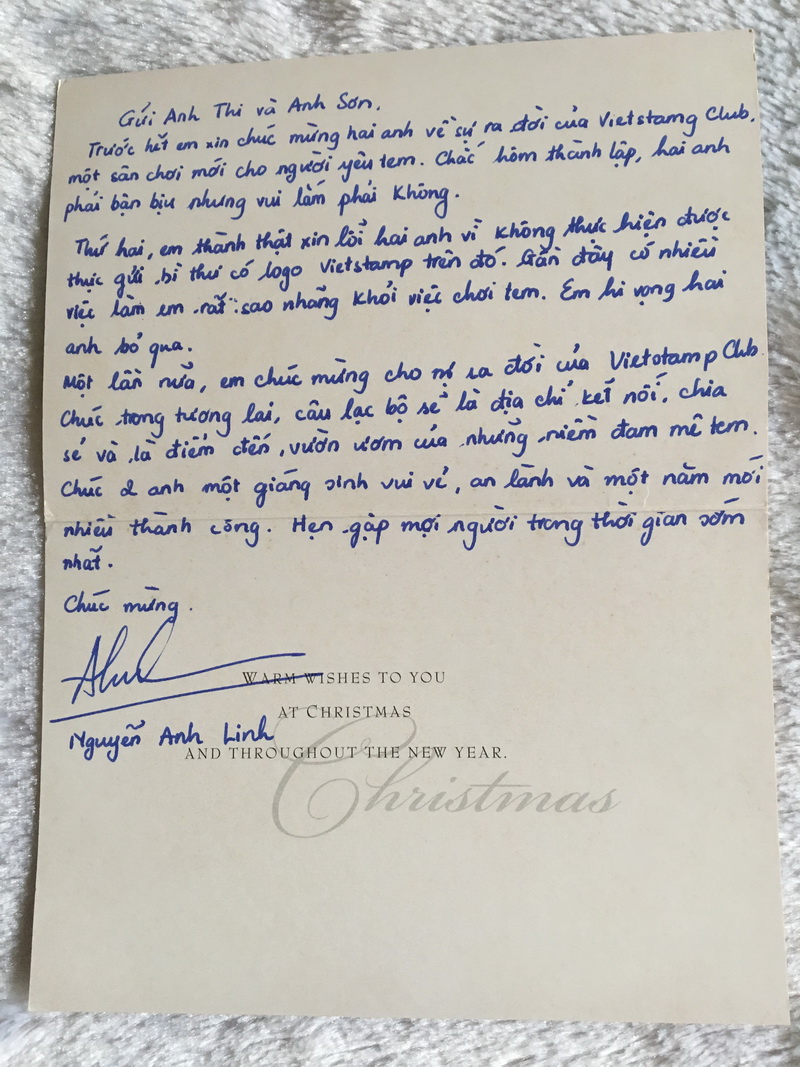 Gửi Anh Thi và Anh Sơn.
Trước hết em xin chúc mừng hai anh về sự ra đời của Vietstamp Club.
một sân chơi mới cho người yêu tem. Chắc hôm thành lập, hai anh
phải bận bịu nhưng vui lắm phải không.
Thứ hai, em thành thật xin lỗi hai anh vì không thực hiện được
thực gửi bì thư có logo Vietstamp trên đó. Gần đây có nhiều
việc làm em rất sao nhãng khỏi việc chơi tem. Em hi vọng hai
anh bỏ qua.
Một lần nữa, em chúc mừng cho sự ra đời của Vietstamp Club
Chúc trong tương lai, câu lạc bộ sẽ là địa chỉ kết nối, chia
sẻ và là điểm đến, vườn ươm của những niềm đam mê tem.
Chúc 2 anh một giáng sinh vui vẻ, an lành và một năm mới
nhiều thành công. Hẹn gặp mọi người trong thời gian sớm
nhất.
Chúc mừng.
WARM WISHES TO YOU
AT CHRISTMAS
Nguyễn Anh Linh
AND THROUGHOUT THE NEW YEAR.
Christmas